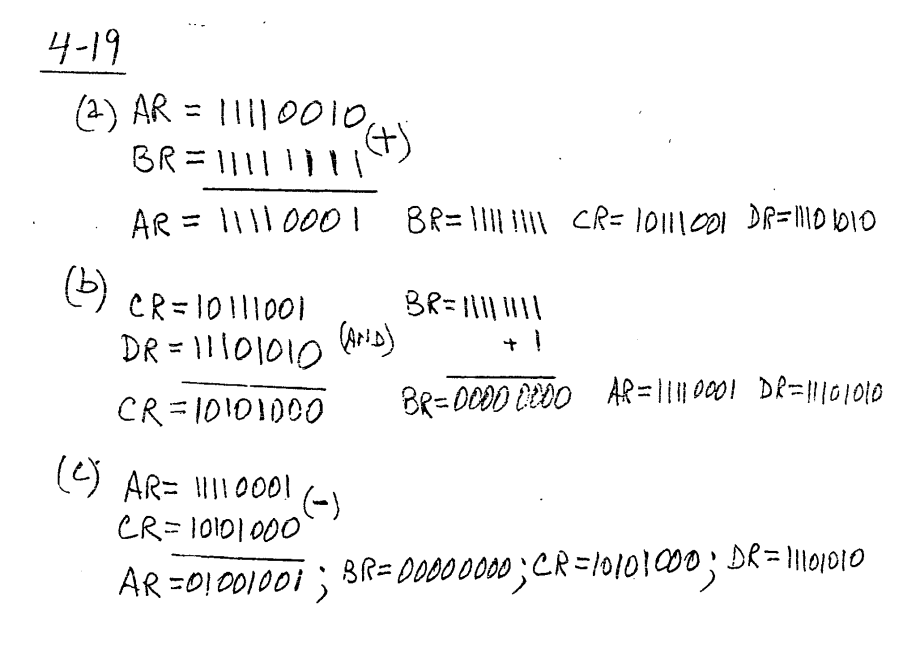 4-19
(a) AR = 11110010
BR = 11111111 (+)
AR = 11110001 BR = 11111111 CR = 10111001 DR = 11101010
(b) CR = 10111001 BR = 11111111
DR = 11101010 (AND) + 1
CR = 10101000 BR = 0000 0000 AR = 11110001 DR = 11101010
(c) AR = 11110001 (-)
CR = 10101000
AR = 01001001 ; BR = 00000000 ; CR = 10101000 ; DR = 11101010